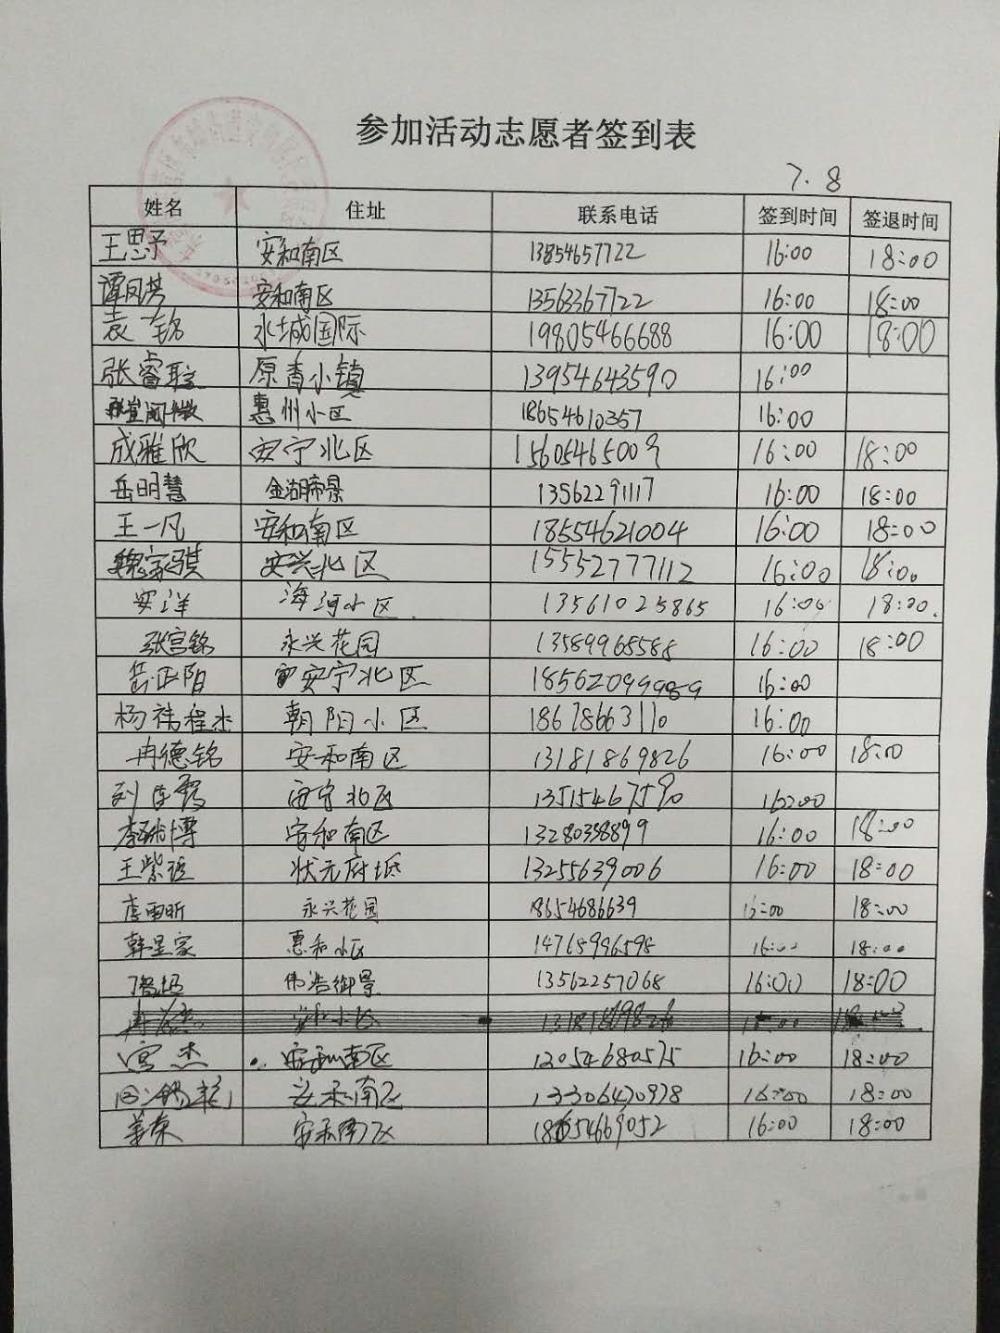 参加活动志愿者签到表
7.8
姓名 住址 联系电话 签到时间 签退时间
王思予 安和南区 13854657722 16:00 18:00
谭凤芸 安和南区 13563367722 16:00 18:00
袁铭 水城国际 19805466688 16:00 18:00
张睿聪 原香小镇 13954643590 16:00
惠州小区 18654610357 16:00
成雅欣 安宁北区 15605465009 16:00 18:00
岳明慧 金湖帝景 13562291117 16:00 18:00
王一凡 安和南区 18554621004 16:00 18:00
魏家骐 安兴北区 15552777112 16:00 18:00
安洋 海河小区 13561025865 16:00 18:00
张宫铭 永兴花园 13589965588 16:00 18:00
岳正阳 安宁北区 16:00
杨祎程 朝阳小区 18678663110 16:00
冉德铭 安和南区 13181869826 16:00 18:00
安宁北区 13515467590 16:00
李瑞博 安和南区 13280358899 16:00 18:00
王紫 状元府邸 13255639006 16:00 18:00
李雨昕 永兴花园 18654686639 16:00 18:00
韩星家 惠和小区 14768996598 16:00 18:00
伟浩御景 13562257068 16:00 18:00
宫杰 安和南区 16:00 18:00
安和南区 13306470978 16:00 18:00
安和南区 18654669052 16:00 18:00